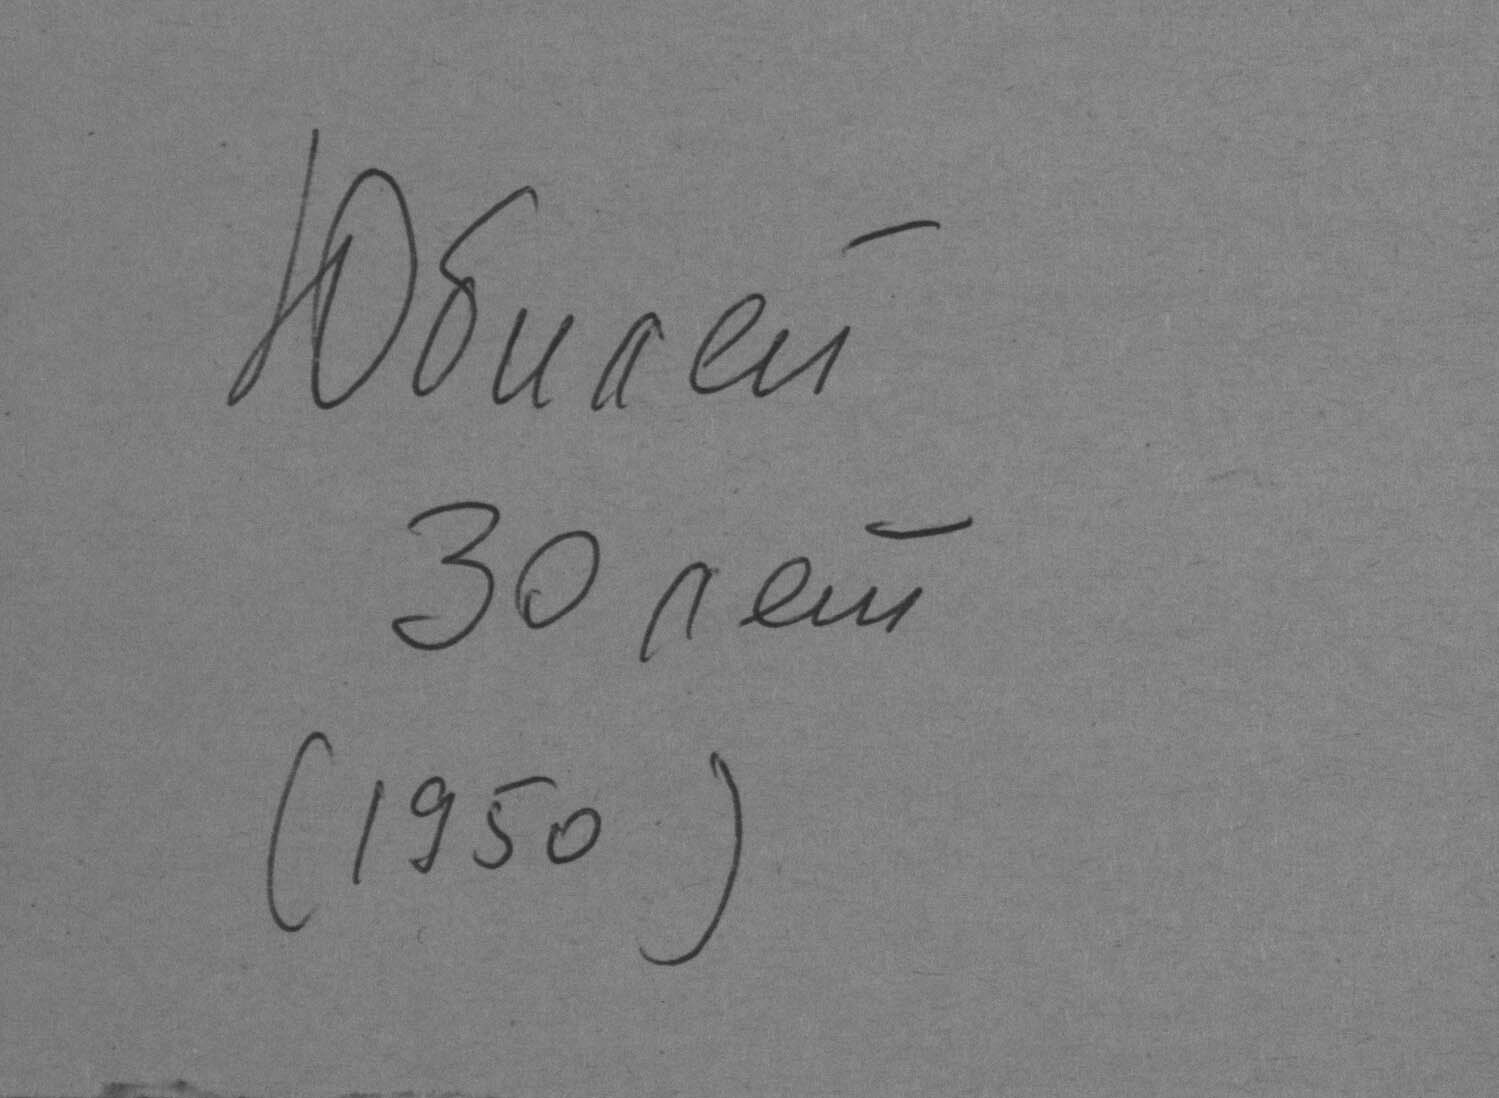 Юбилей
30 лет
(1950)